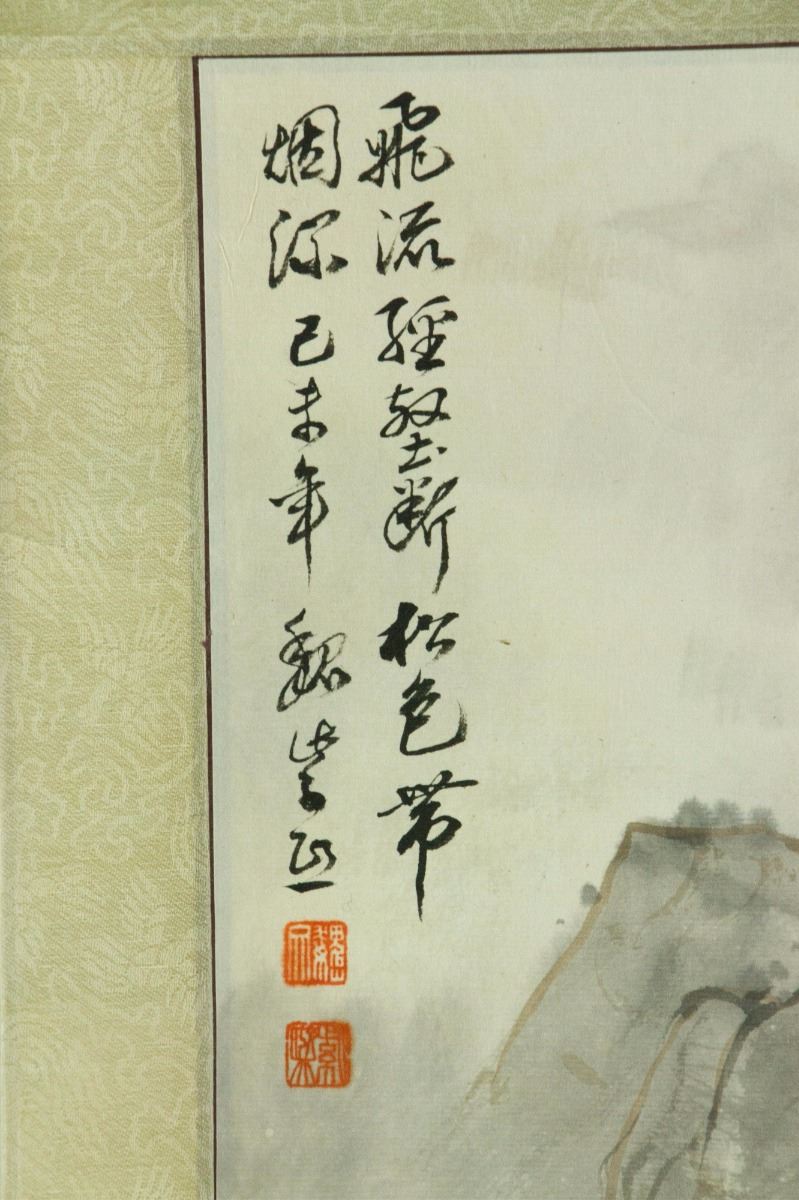 飛流經壑斷松色帶
烟深己未年 魏紫熙